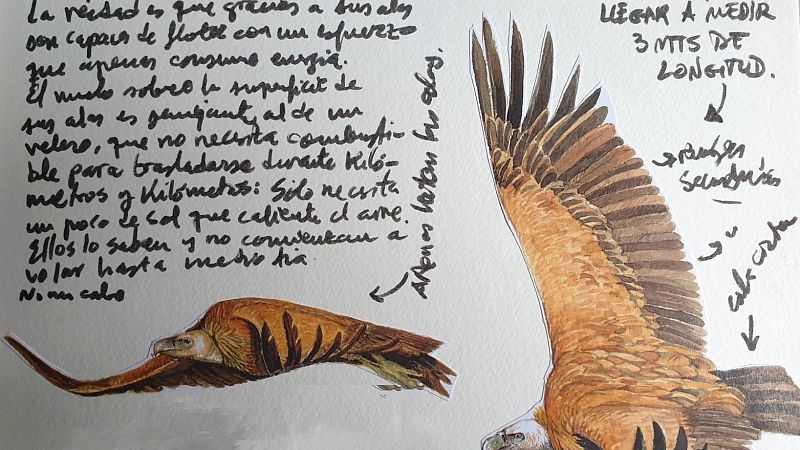 La verdad es que gracias a sus alas
son capaces de flotar con un esfuerzo
que apenas consume energía.
El suelo sobre la superficie de
sus alas es semejante al de un
velero, que no necesita combusti-
ble para trasladarse durante kiló-
metros y kilómetros: Sólo necesita
un poco de sol que caliente el aire.
Ellos lo saben y no comienzan a
volar hasta medio día.
Apenas baten las alas.
LLEGAR A MEDIR
3 MTS DE
LONGITUD.
secundarias
cola corta